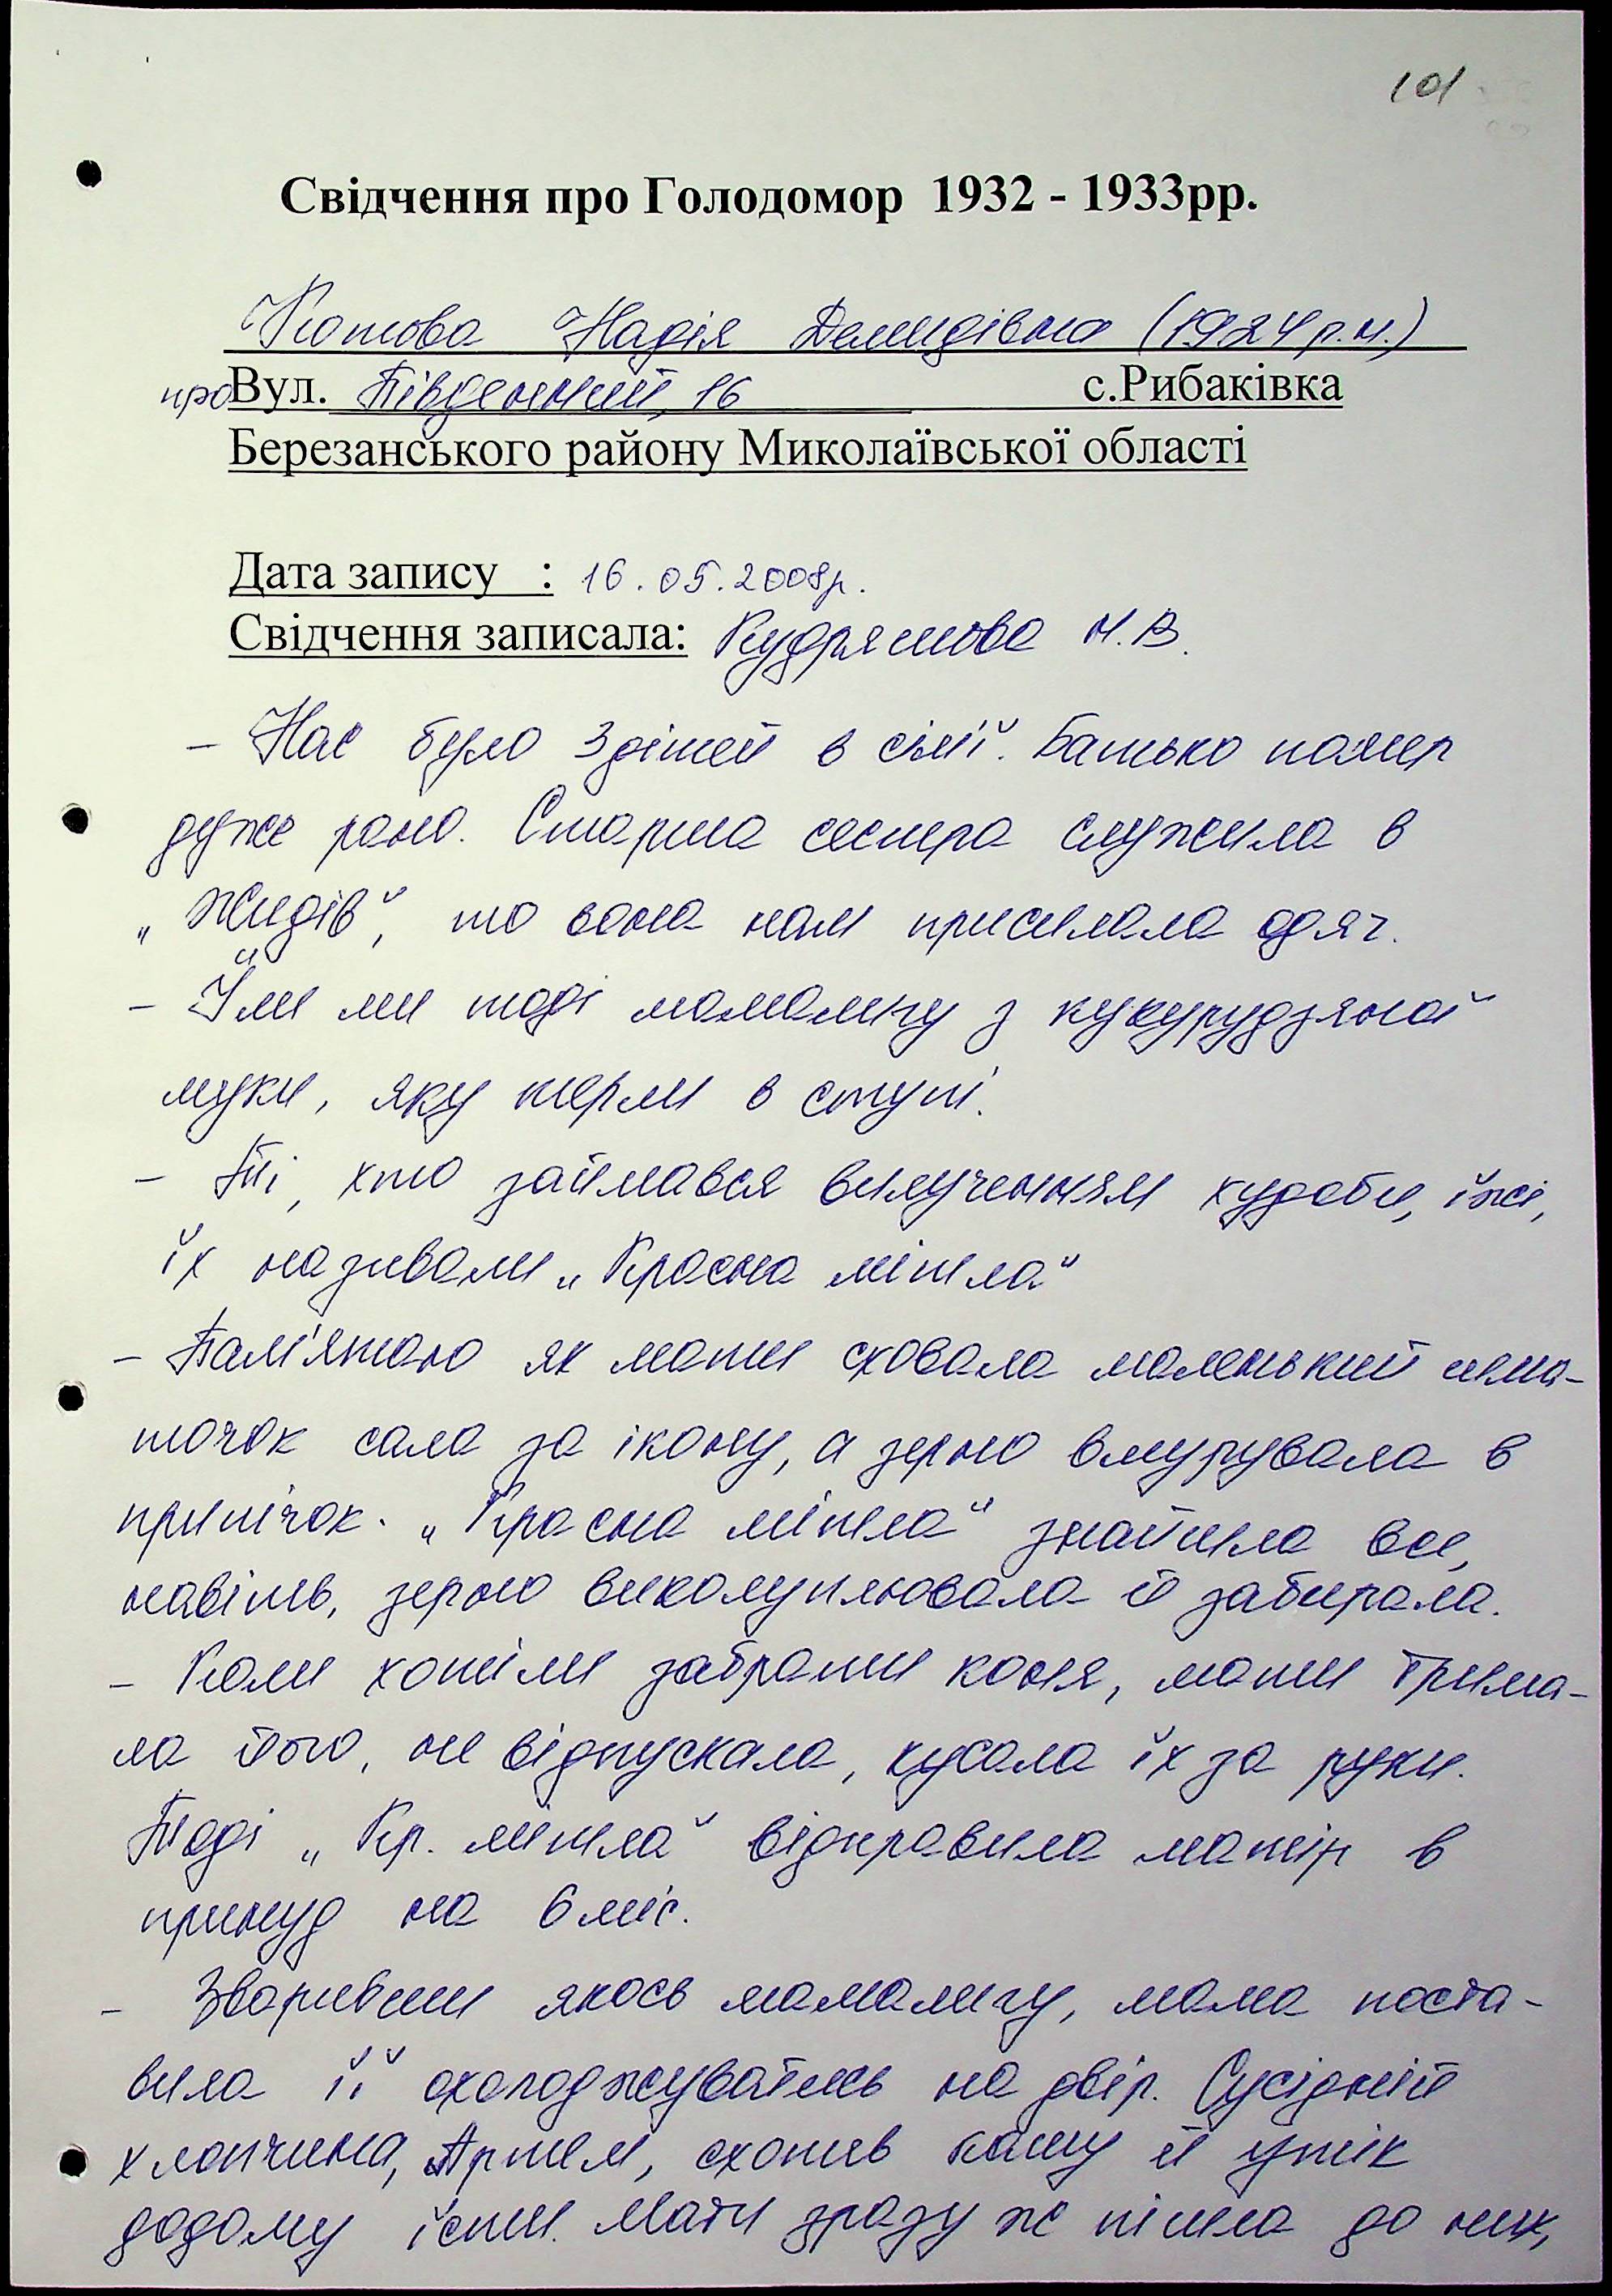 101
Свідчення про Голодомор 1932 - 1933рр.
Котова Надія Демидівна (1924 р.н.)
про Вул. Південний, 16 с.Рибаківка
Березанського району Миколаївської області
Дата запису : 16.05.2008р.
Свідчення записала: Кудряшова Н.В.
– Нас було 3 дітей в сім'ї. Батько помер
дуже рано. Старша сестра служила в
„Жидів“, то вона нам присилала одяг.
– Їли ми тоді мамалигу з кукурудзяної
муки, яку терли в ступі.
– Ті, хто займався вилученням худоби, їжі,
їх називали „Красна мітла“
– Пам'ятаю як мати сховала маленький шма-
точок сала за ікону, а зерно вмурувала в
припічок. „Красна мітла“ знайшла все,
навіть, зерно виколуплювала й забирала.
– Коли хотіли забрати коня, мати трима-
ла його, не відпускала, кусала їх за руки.
Тоді „Кр. мітла“ відправила матір в
принуд на 6 міс.
– Зваривши якось мамалигу, мама поста-
вила її охолоджуватись на двір. Сусідній
хлопчина, Артем, схопив кашу й утік
додому їсти. Мати зразу ж пішла до них,